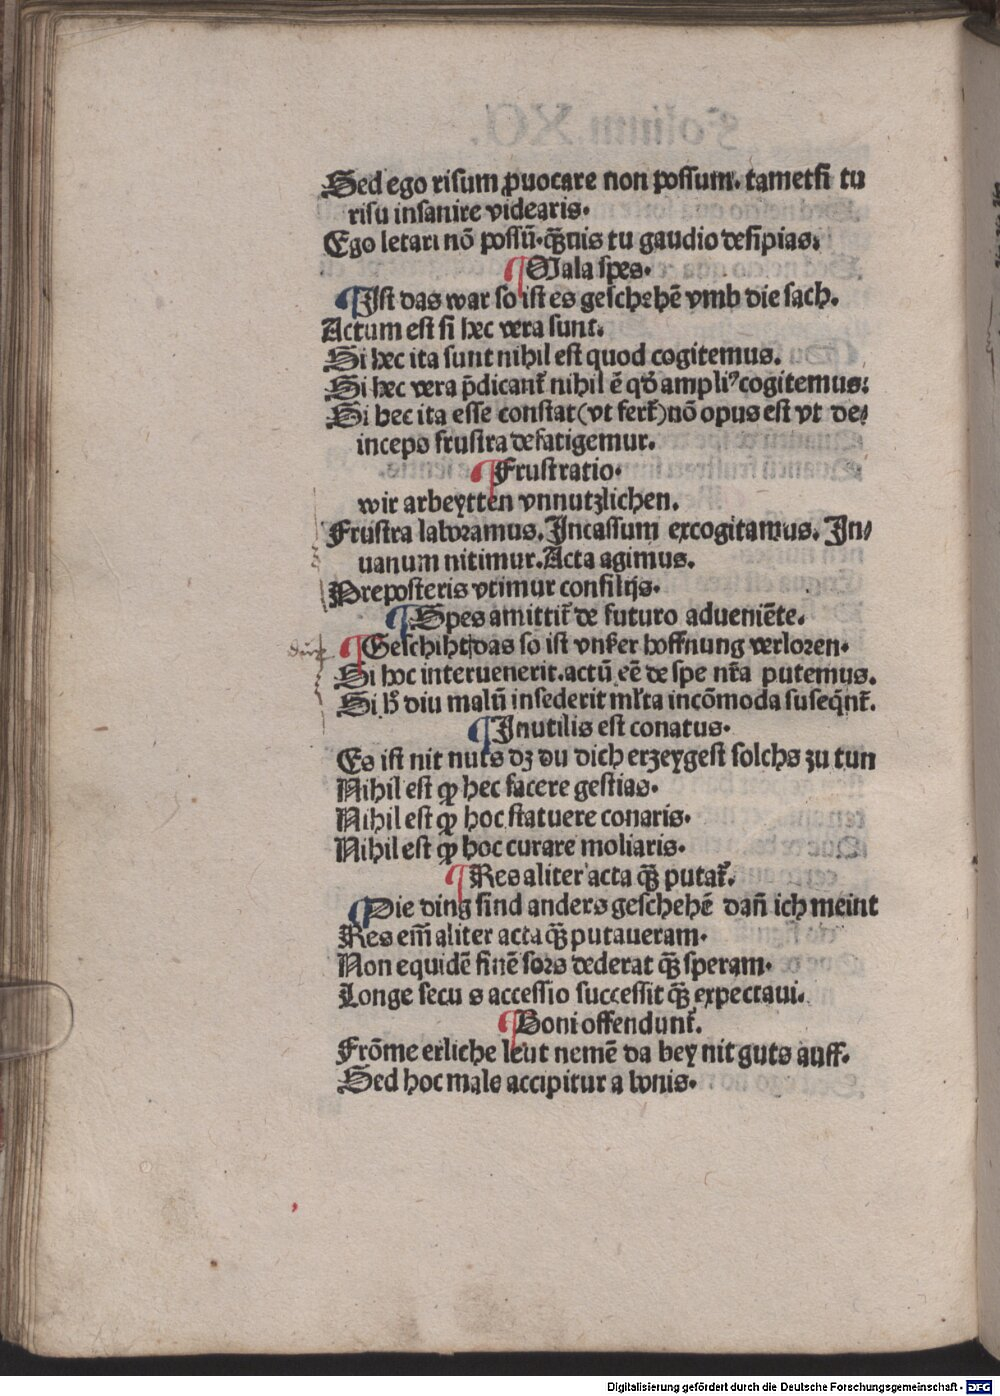 Sed ego risum ꝓuocare non possum. tametsi tu
risu insanire videaris.
Ego letari nō possū. qꝫuis tu gaudio desipias.
¶ Mala spes.
¶ Ist das war so ist es geschehē vmb die sach.
Actum est si hec vera sunt.
Si hec ita sunt nihil est quod cogitemus.
Si hec vera p̄dicant᷑ nihil ē qd̓ ampliꝰ cogitemus.
Si hec ita esse constat (vt fert᷑) nō opus est vt de⸗
inceps frustra defatigemur.
¶ Frustratio.
wir arbeytten vnnutzlichen.
Frustra laboramus. Incassum excogitamus. In⸗
uanum nitimur. Acta agimus.
Preposteris vtimur consilijs.
¶ Spes amittit᷑ de futuro adueniēte.
¶ Geschiht das so ist vnser hoffnung verloren.
Si hoc interuenerit. actū eē de spe nr̄a putemus.
Si h̓ diu malū insederit ml̓ta incōmoda suseqn̄t᷑.
¶ Inutilis est conatus.
Es ist nit nuts dz du dich erzeygest solchs zu tun
Nihil est ꝙ hec facere gestias.
Nihil est ꝙ hoc statuere conaris.
Nihil est ꝙ hoc curare moliaris.
¶ Res aliter acta qꝫ putat᷑.
¶ Die ding sind anders geschehē dan̄ ich meint
Res em̄ aliter acta qꝫ putaueram.
Non equidē finē sors dederat qꝫ speram.
Longe secu s accessio successit qꝫ expectaui.
¶ Boni offendunt᷑.
Frōme erliche leut nemē da bey nit guts auff.
Sed hoc male accipitur a bonis.
Digitalisierung gefördert durch die Deutsche Forschungsgemeinschaft - DFG